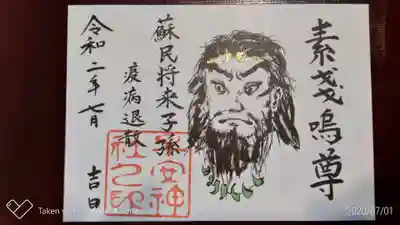 素戔嗚尊
蘇民将来子孫
疫病退散
令和二年七月 吉日
安神
社之印
Taken
2020/07/01